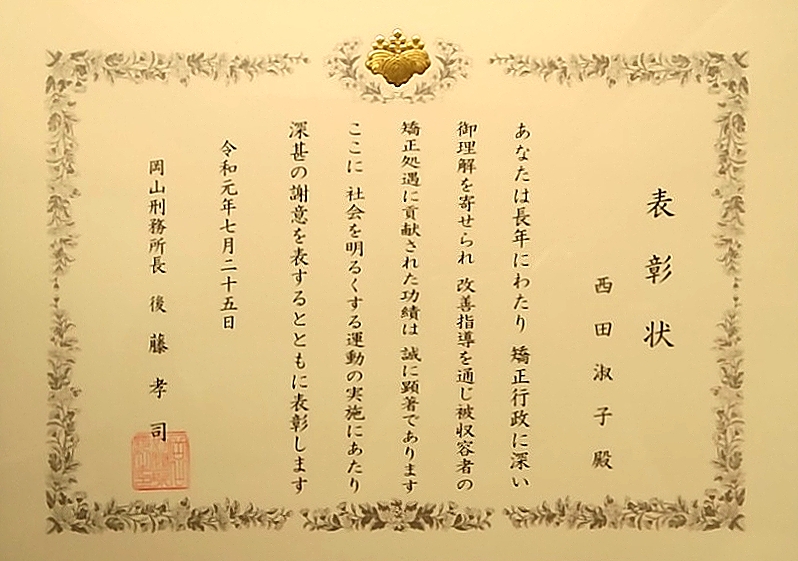 表彰状
西田淑子殿
あなたは長年にわたり 矯正行政に深い
御理解を寄せられ 改善指導を通じ被収容者の
矯正処遇に貢献された功績は 誠に顕著であります
ここに 社会を明るくする運動の実施にあたり
深甚の謝意を表するとともに表彰します
令和元年七月二十五日
岡山刑務所長 後藤孝司